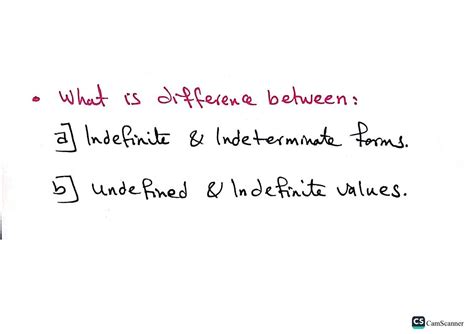 • What is difference between:
a] Indefinite & Indeterminate forms.
b] undefined & Indefinite values.
CS CamScanner